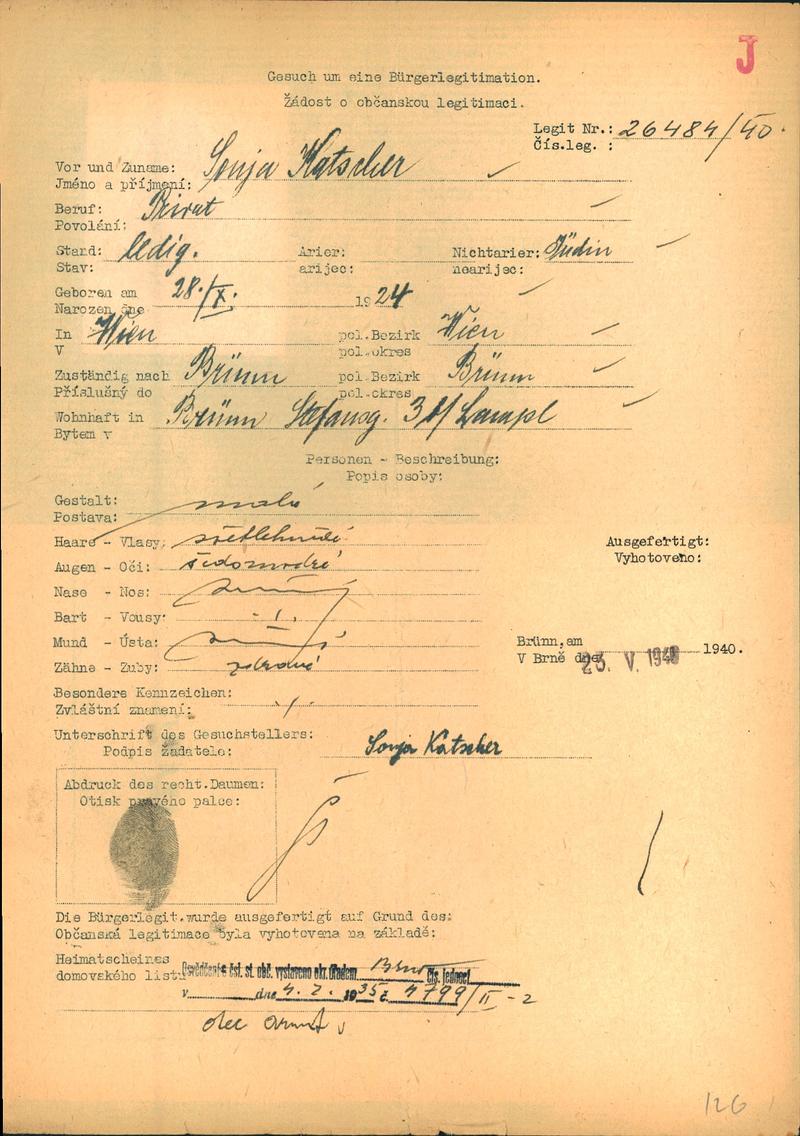 J
Gesuch um eine Bürgerlegitimation.
Žádost o občanskou legitimaci.
Legit Nr.: 26484/40.
Čís.leg. :
Vor und Zuname: Sonja Katscher
Jméno a příjmení:
Beruf: Privat
Povolání:
Stand: ledig. Arier: Nichtarier: Jüdin
Stav: arijec: nearijec:
Geboren am 28./X. 1924
Narozen dne
In Wien pol.Bezirk Wien
V pol.okres
Zuständig nach Brünn pol.Bezirk Brünn
Příslušný do pol.okres
Wohnhaft in Brünn Stefansg. Lampl
Bytem v
Personen - Beschreibung:
Popis osoby:
Gestalt: malá
Postava:
Haare - Vlasy: světlehnědé
Augen - Oči: šedomodré
Nase - Nos:
Bart - Vousy: - 1.
Mund - Ústa:
Zähne - Zuby: zdravé
Ausgefertigt:
Vyhotoveno:
Brünn, am 1940.
V Brně dne 23. V. 1940
Besondere Kennzeichen:
Zvláštní znamení: ./.
Unterschrift des Gesuchstellers:
Podpis žadatele: Sonja Katscher
Abdruck des recht.Daumen:
Otisk pravého palce:
Die Bürgerlegit.wurde ausgefertigt auf Grund des:
Občanská legitimace byla vyhotovena na základě:
Heimatscheines
domovského listu Osvědčení o čsl. st. obč. vystaveno okr. úřadem Brno čís. jednací
v dne 4. 2. 1935 č 4799/II - 2
otec
126